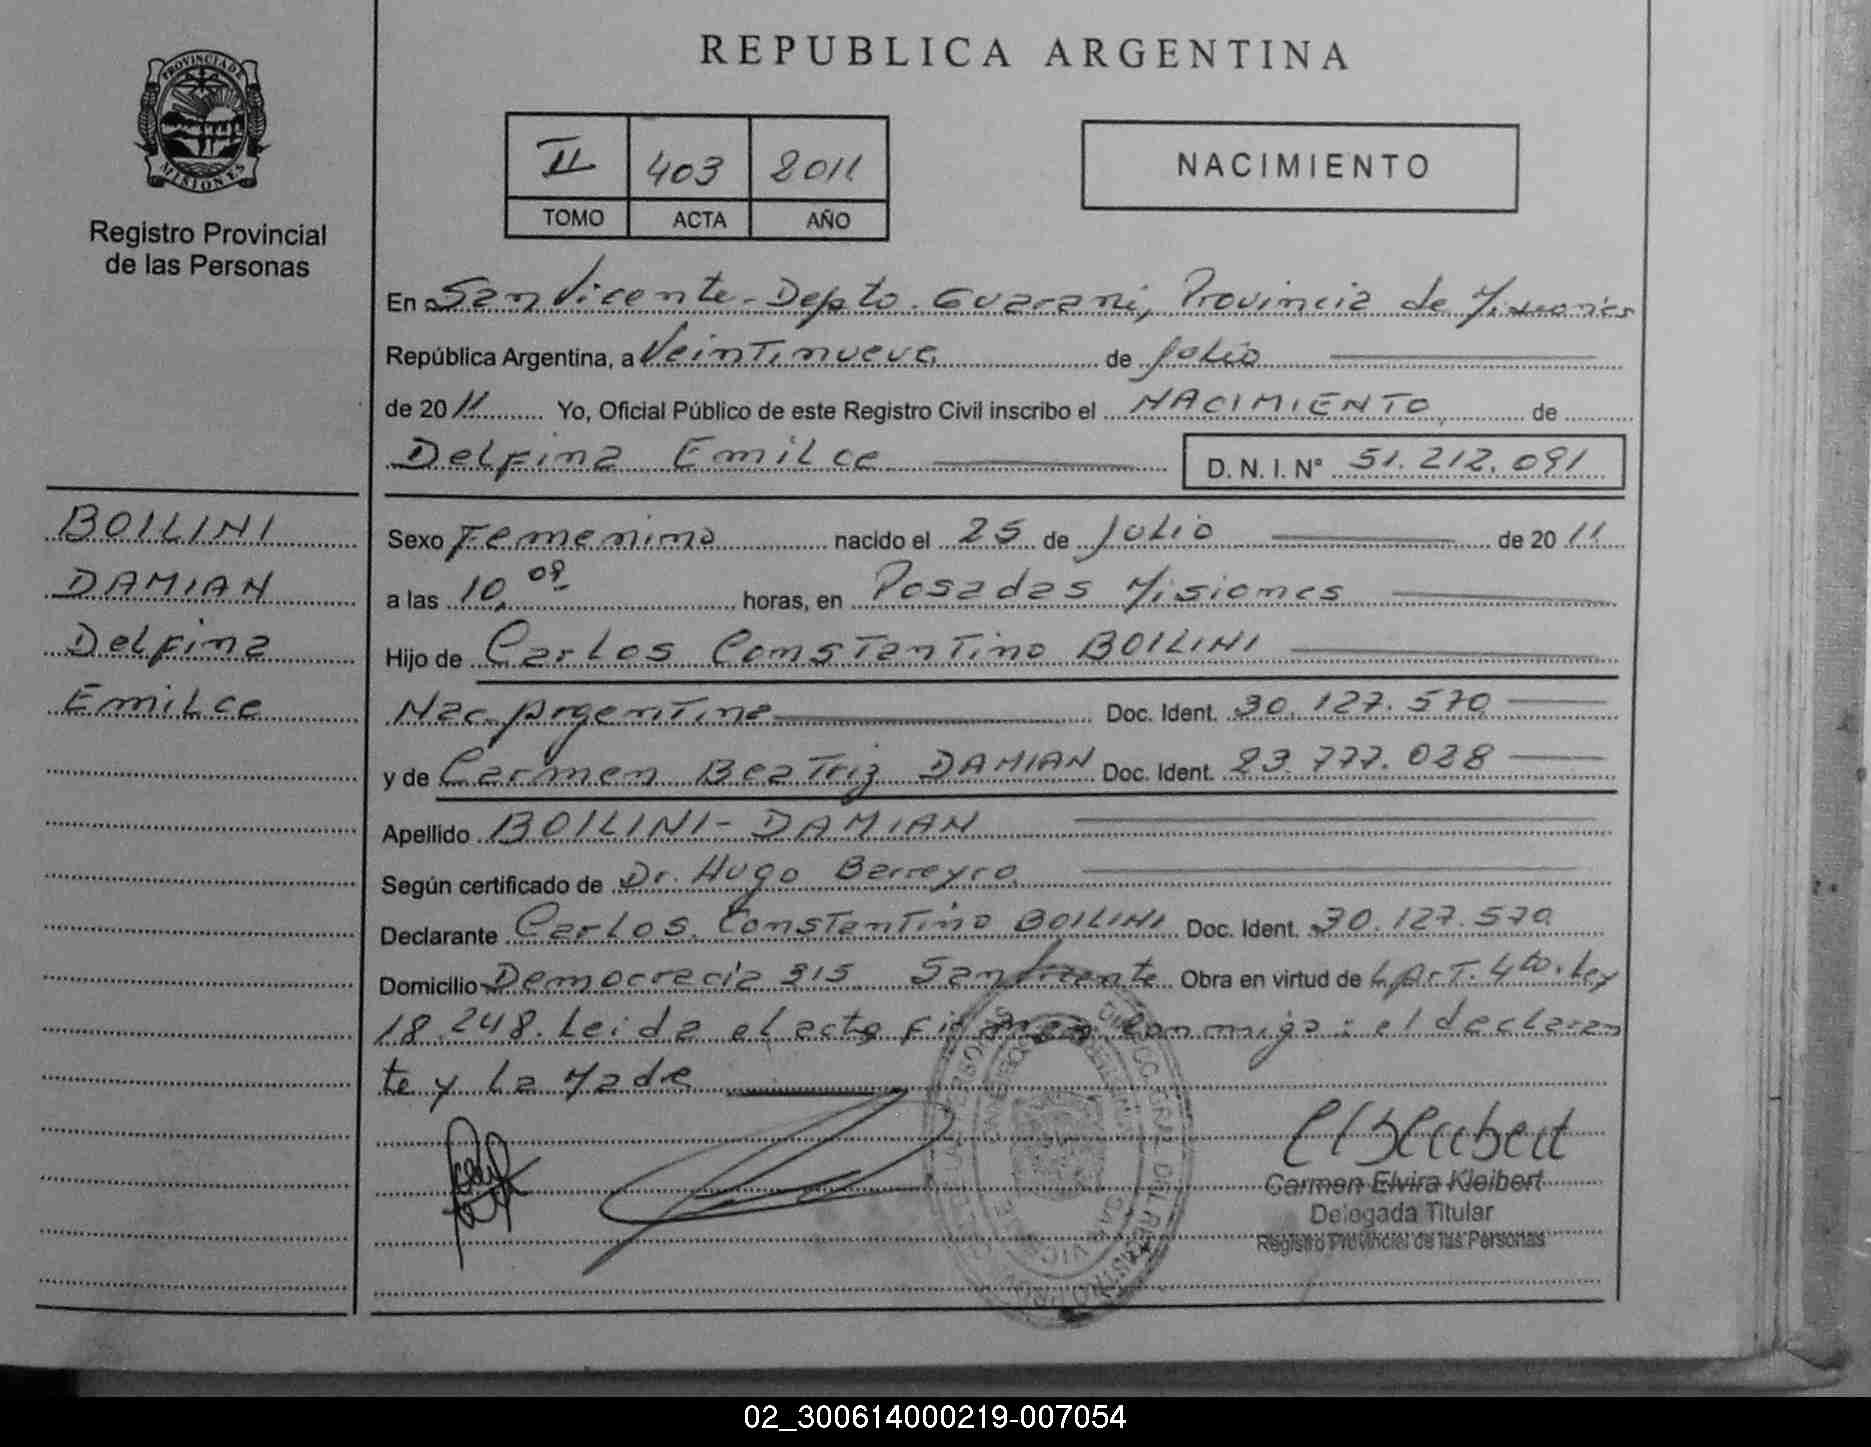 REPUBLICA ARGENTINA
PROVINCIA DE
MISIONES
Registro Provincial
de las Personas
II 403 2011
TOMO ACTA AÑO
NACIMIENTO
En San Vicente - Depto. Guarani, Provincia de Misiones
República Argentina, a Veintinueve de Julio
de 20 11 Yo, Oficial Público de este Registro Civil inscribo el NACIMIENTO de
Delfina Emilce D. N. I. N° 51.212.091
BOILINI
DAMIAN
Delfina
Emilce
Sexo Femenino nacido el 25 de Julio de 20 11
a las 10,09 horas, en Posadas Misiones
Hijo de Carlos Constantino BOILINI
Nac. Argentina Doc. Ident. 30.127.570
y de Carmen Beatriz DAMIAN Doc. Ident. 23.777.028
Apellido BOILINI - DAMIAN
Según certificado de Dr. Hugo Barreyro
Declarante Carlos Constantino BOILINI Doc. Ident. 30.127.570
Domicilio Democracia 315 San Vicente Obra en virtud de L. Art. 4to. Ley
18.248. Leida el acta firman conmigo: el declaran
te y La Madre
Carmen Elvira Kleibert
Delegada Titular
Registro Provincial de las Personas
02_300614000219-007054